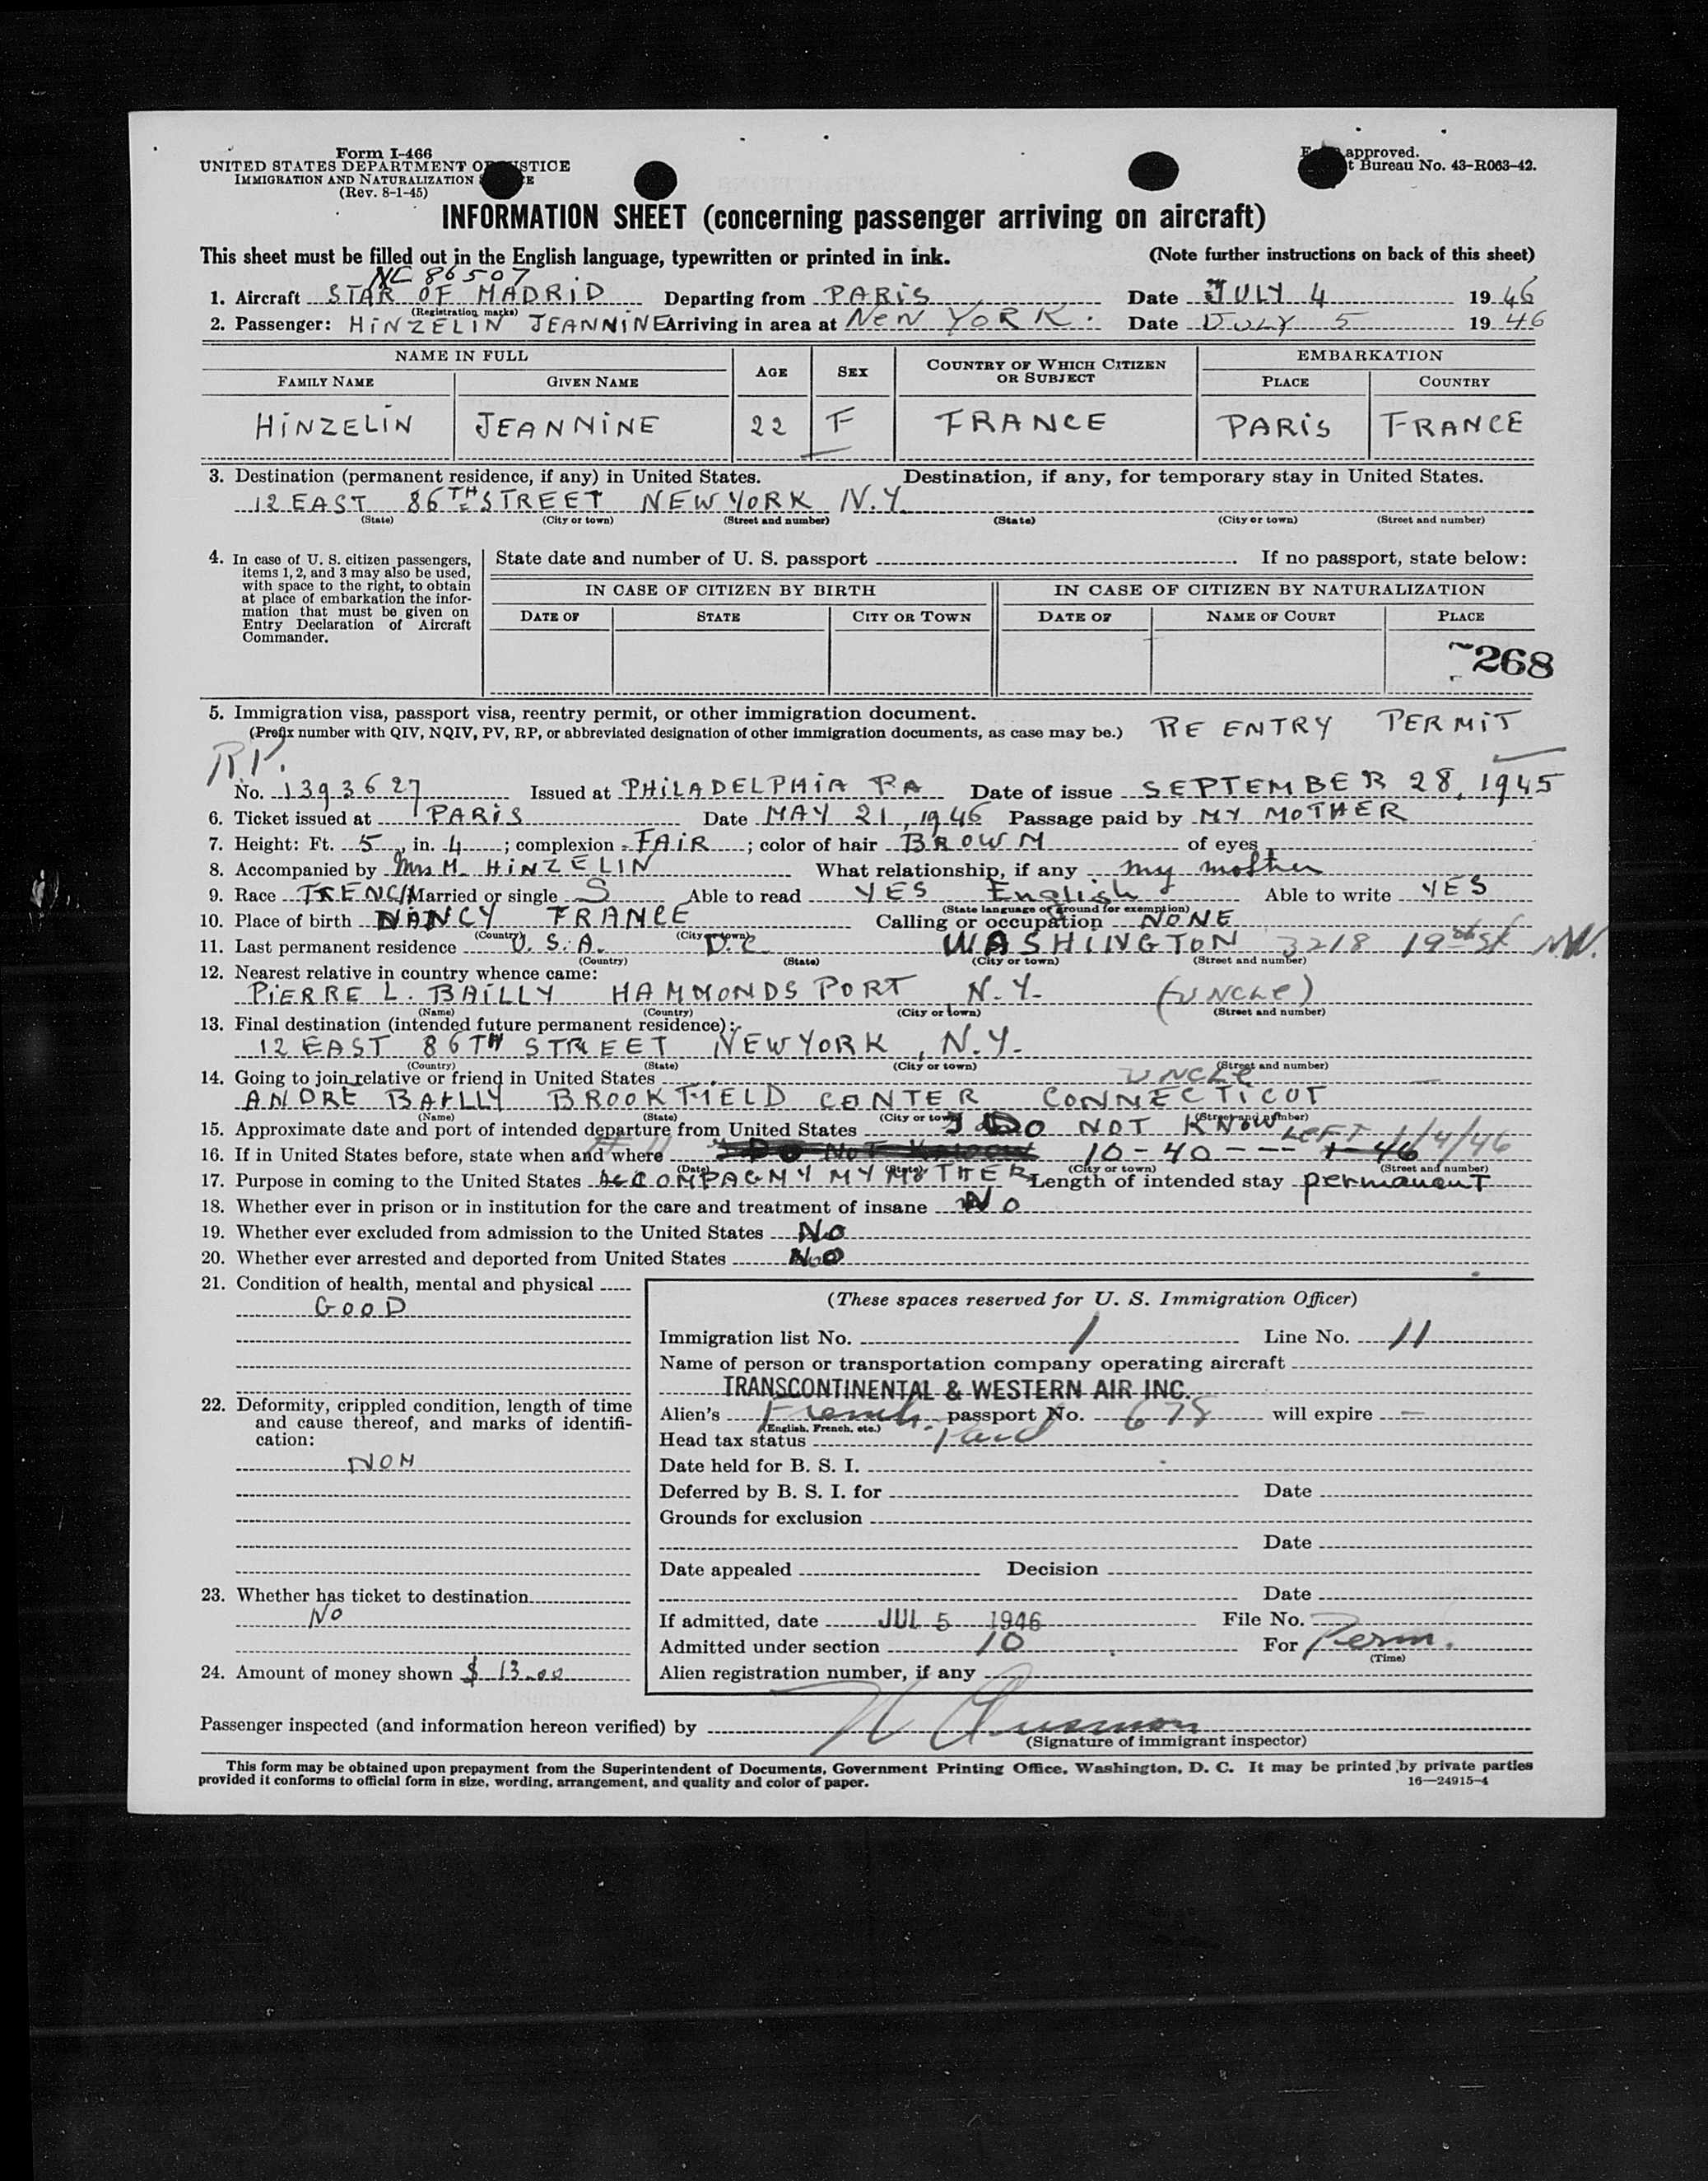 Form I-466
UNITED STATES DEPARTMENT OF JUSTICE
IMMIGRATION AND NATURALIZATION
(Rev. 8-1-45)
approved.
t Bureau No. 43-R063-42.
INFORMATION SHEET (concerning passenger arriving on aircraft)
This sheet must be filled out in the English language, typewritten or printed in ink. (Note further instructions on back of this sheet)
NC 86507
1. Aircraft STAR OF MADRID Departing from PARIS Date JULY 4 1946
(Registration marks)
2. Passenger: HINZELIN JEANNINE Arriving in area at NEW YORK. Date JULY 5 1946
NAME IN FULL AGE SEX COUNTRY OF WHICH CITIZEN OR SUBJECT EMBARKATION
FAMILY NAME GIVEN NAME PLACE COUNTRY
HINZELIN JEANNINE 22 F FRANCE PARIS FRANCE
3. Destination (permanent residence, if any) in United States. Destination, if any, for temporary stay in United States.
12 EAST 86TH STREET NEW YORK N.Y.
(State) (City or town) (Street and number) (State) (City or town) (Street and number)
4. In case of U. S. citizen passengers, items 1, 2, and 3 may also be used, with space to the right, to obtain at place of embarkation the information that must be given on Entry Declaration of Aircraft Commander.
State date and number of U. S. passport . If no passport, state below:
IN CASE OF CITIZEN BY BIRTH IN CASE OF CITIZEN BY NATURALIZATION
DATE OF STATE CITY OR TOWN DATE OF NAME OF COURT PLACE
268
5. Immigration visa, passport visa, reentry permit, or other immigration document.
(Prefix number with QIV, NQIV, PV, RP, or abbreviated designation of other immigration documents, as case may be.) RE ENTRY PERMIT
RP.
No. 1393627 Issued at PHILADELPHIA PA Date of issue SEPTEMBER 28, 1945
6. Ticket issued at PARIS Date MAY 21, 1946 Passage paid by MY MOTHER
7. Height: Ft. 5, in. 4; complexion FAIR; color of hair BROWM of eyes
8. Accompanied by Mrs M. HINZELIN What relationship, if any my mother
9. Race FRENCH Married or single S Able to read YES English Able to write YES
(State language or ground for exemption)
10. Place of birth NANCY FRANCE Calling or occupation NONE
(Country) (City or town)
11. Last permanent residence U.S.A. D.C. WASHINGTON 3218 19th St N.W.
(Country) (State) (City or town) (Street and number)
12. Nearest relative in country whence came:
PIERRE L. BAILLY HAMMONDSPORT N.Y. (UNCLE)
(Name) (Country) (City or town) (Street and number)
13. Final destination (intended future permanent residence):
12 EAST 86TH STREET NEW YORK, N.Y.
(Country) (State) (City or town) (Street and number)
14. Going to join relative or friend in United States UNCLE
ANDRE BAILLY BROOKFIELD CENTER CONNECTICUT
(Name) (State) (City or town) (Street and number)
15. Approximate date and port of intended departure from United States I DO NOT KNOW LEFT 1/4/46
16. If in United States before, state when and where 10-40--- 1-46
(Date) (State) (City or town) (Street and number)
17. Purpose in coming to the United States ACCOMPAGNY MY MOTHER Length of intended stay permanent
18. Whether ever in prison or in institution for the care and treatment of insane No
19. Whether ever excluded from admission to the United States No
20. Whether ever arrested and deported from United States NO
21. Condition of health, mental and physical
GOOD
22. Deformity, crippled condition, length of time and cause thereof, and marks of identification:
NON
23. Whether has ticket to destination
No
24. Amount of money shown $ 13.00
(These spaces reserved for U. S. Immigration Officer)
Immigration list No. 1 Line No. 11
Name of person or transportation company operating aircraft
TRANSCONTINENTAL & WESTERN AIR INC.
Alien's French passport No. 678 will expire —
(English, French, etc.)
Head tax status Paid
Date held for B. S. I.
Deferred by B. S. I. for Date
Grounds for exclusion
Date
Date appealed Decision
Date
If admitted, date JUL 5 1946 File No.
Admitted under section 10 For Perm.
(Time)
Alien registration number, if any
Passenger inspected (and information hereon verified) by
(Signature of immigrant inspector)
This form may be obtained upon prepayment from the Superintendent of Documents, Government Printing Office, Washington, D. C. It may be printed by private parties
provided it conforms to official form in size, wording, arrangement, and quality and color of paper. 16—24915-4